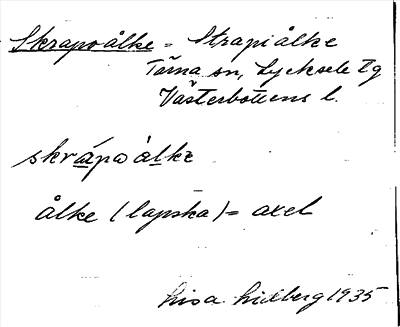 Skrapoålke = Strapiålke
Tärna sn, Lycksele lg
Västerbottens l.
skrápoålke
ålke (lapska) = axel
Lisa Lidberg 1935